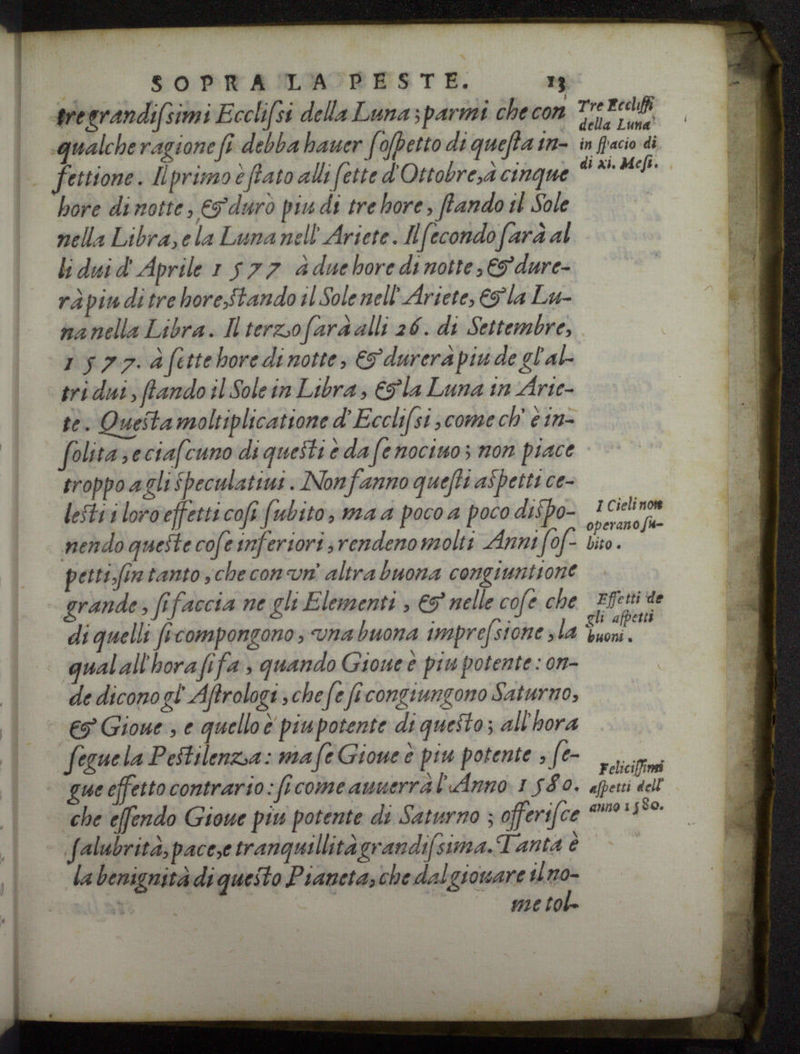 SOPRA LA PESTE. 13
tre grandiſsimi Eccliſsi della Luna; parmi che con
qualche ragione ſi debba hauer ſoſpetto di queſta in-
fettione. Il primo è ſtato alli ſette d'Ottobre, à cinque
hore di notte, & durò piu di tre hore, ſtando il Sole
nella Libra, e la Luna nell' Ariete. Il ſecondo ſarà al
li dui d' Aprile 1577 à due hore di notte, & dure-
rà piu di tre hore, ſtando il Sole nell' Ariete, & la Lu-
na nella Libra. Il terzo ſarà alli 26. di Settembre,
1577. à ſette hore di notte, & durerà piu de gl' al-
tri dui, ſtando il Sole in Libra, & la Luna in Arie-
te. Queſta moltiplicatione d' Eccliſsi, come ch' è in-
ſolita, e ciaſcuno di queſti è da ſe nociuo; non piace
troppo a gli ſpeculatiui. Non fanno queſti aſpetti ce-
leſti i loro effetti coſi ſubito, ma a poco a poco diſpo-
nendo queſte coſe inferiori, rendeno molti Anni ſoſ-
petti, fin tanto, che con vn' altra buona congiuntione
grande, ſi faccia ne gli Elementi, & nelle coſe che
di quelli ſi compongono, vna buona impreſsione, la
qual all' hora ſi fa, quando Gioue è piu potente: on-
de dicono gl' Aſtrologi, che ſe ſi congiungono Saturno,
& Gioue, e quello è piu potente di queſto; all' hora
ſegue la Peſtilenza: ma ſe Gioue è piu potente, ſe-
gue effetto contrario: ſi come auuerrà l' Anno 1580.
che eſſendo Gioue piu potente di Saturno; offeriſce
ſalubrità, pace, e tranquillità grandiſsima. Tanta è
la benignità di queſto Pianeta, che dal giouare il no-
me tol-
Tre Eccliſſi
della Luna
in ſpacio di
di xi. Meſi.
I Cieli non
operano ſu-
bito.
Effetti de
gli aſpetti
buoni.
Feliciſſimi
aſpetti dell'
anno 1580.